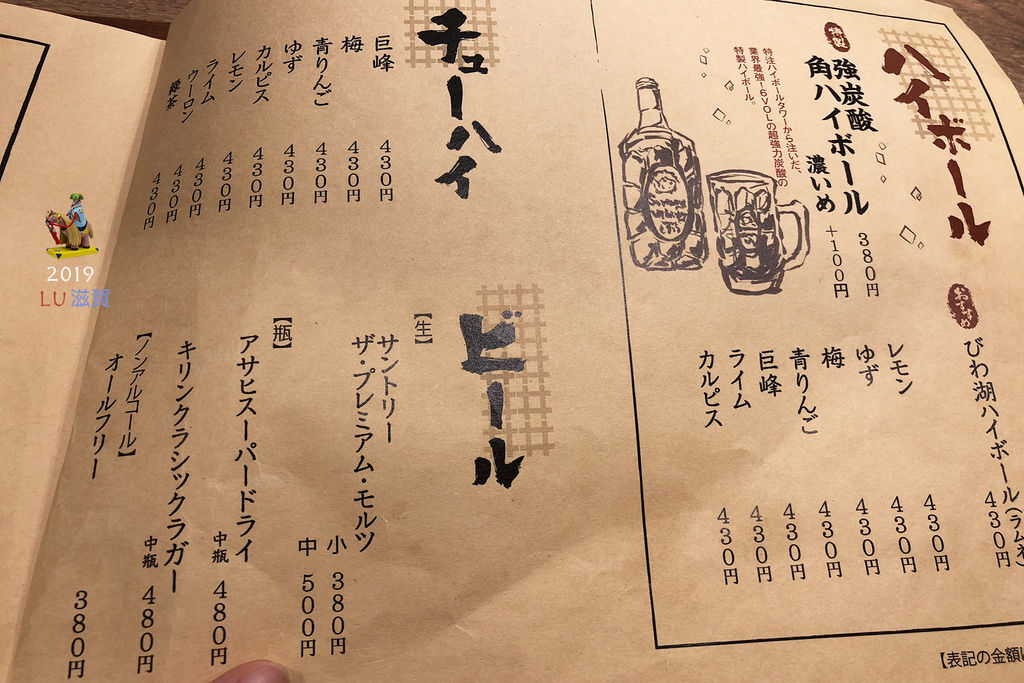 ハイボール
特製
強炭酸
角ハイボール 380円
濃いめ +100円
特注ハイボールタワーから注いだ、
業界最強!6VOLの超強力炭酸の
特製ハイボール。
おすすめ
びわ湖ハイボール(ラムネ) 430円
レモン 430円
ゆず 430円
梅 430円
青りんご 430円
巨峰 430円
ライム 430円
カルピス 430円
【表記の金額は
チューハイ
巨峰 430円
梅 430円
青りんご 430円
ゆず 430円
カルピス 430円
レモン 430円
ライム 430円
ウーロン 430円
緑茶 430円
ビール
【生】
サントリー
ザ・プレミアム・モルツ
小 380円
中 500円
【瓶】
アサヒスーパードライ
中瓶 480円
キリンクラシックラガー
中瓶 480円
【ノンアルコール】
オールフリー 380円
2019
LU滋賀